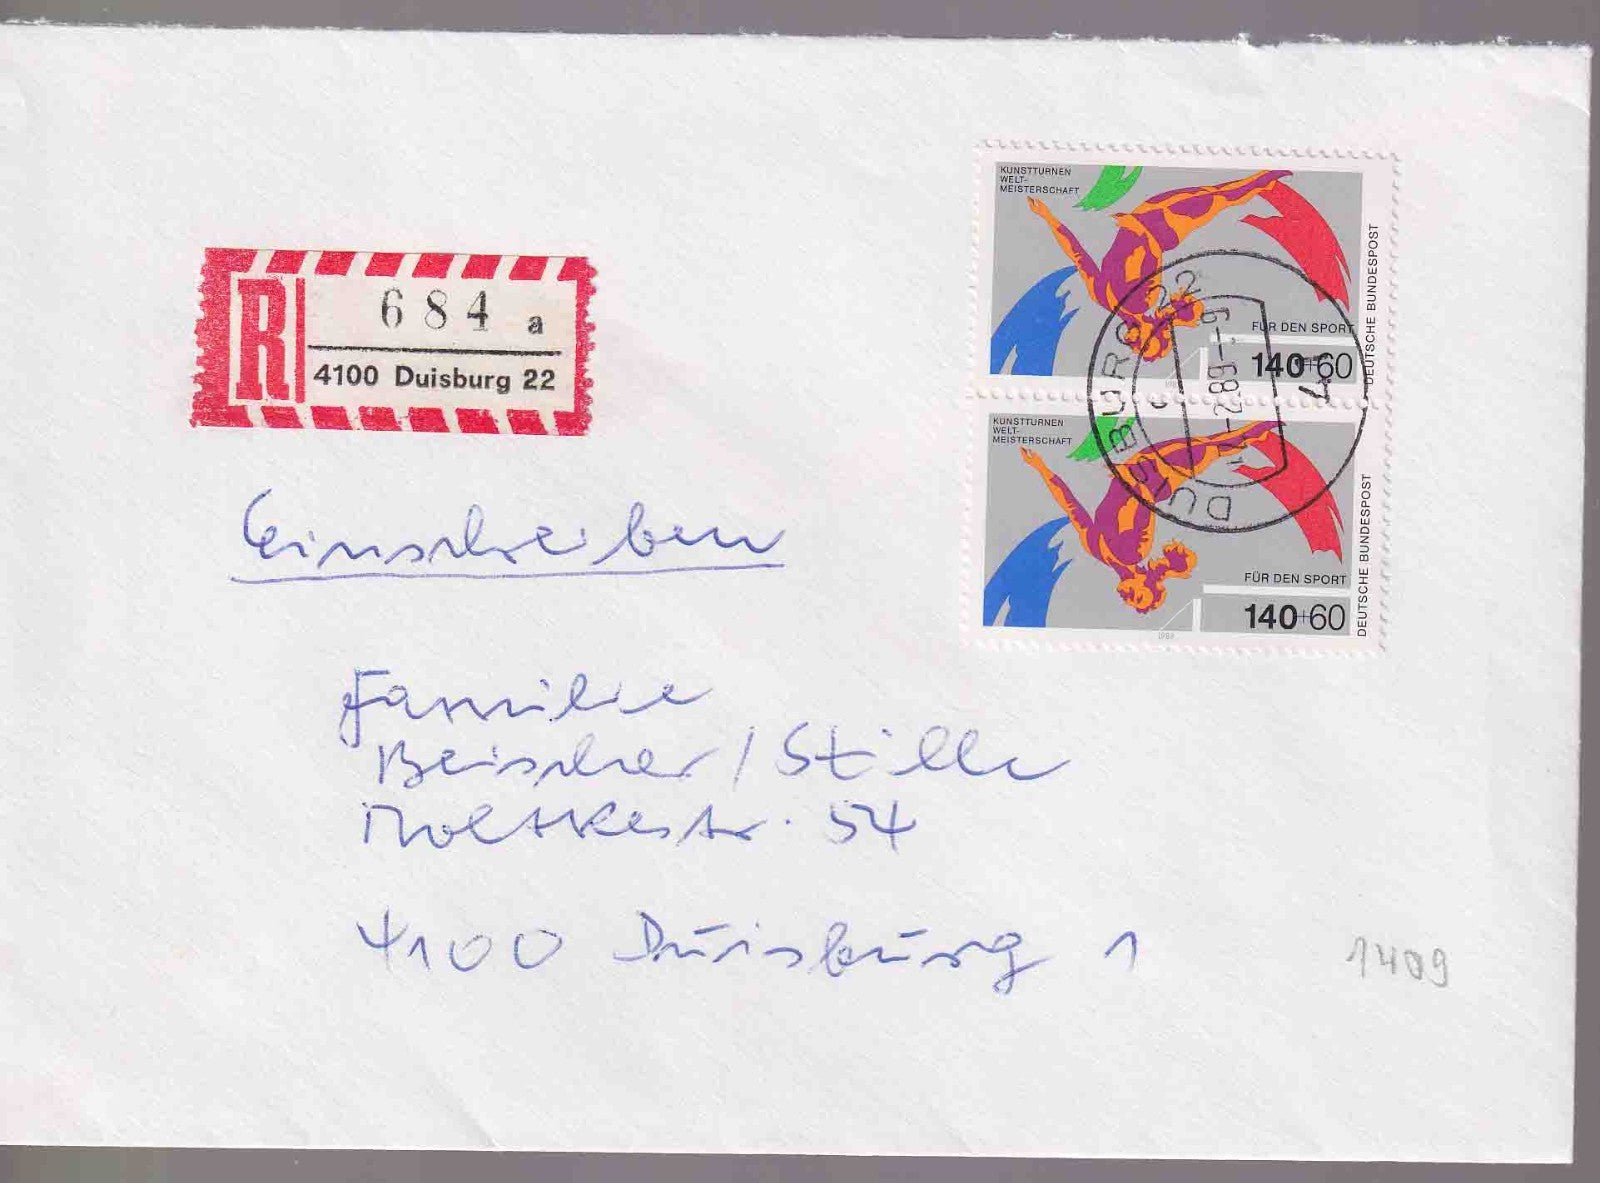 KUNSTTURNEN
WELT-
MEISTERSCHAFT
FÜR DEN SPORT
140+60
DEUTSCHE BUNDESPOST
R
684 a
4100 Duisburg 22
DUISBURG 22
KUNSTTURNEN
WELT-
MEISTERSCHAFT
FÜR DEN SPORT
140+60
DEUTSCHE BUNDESPOST
1989
Einschreiben
Familie
Beischer / Stille
Moltkestr. 54
4100 Duisburg 1
1409